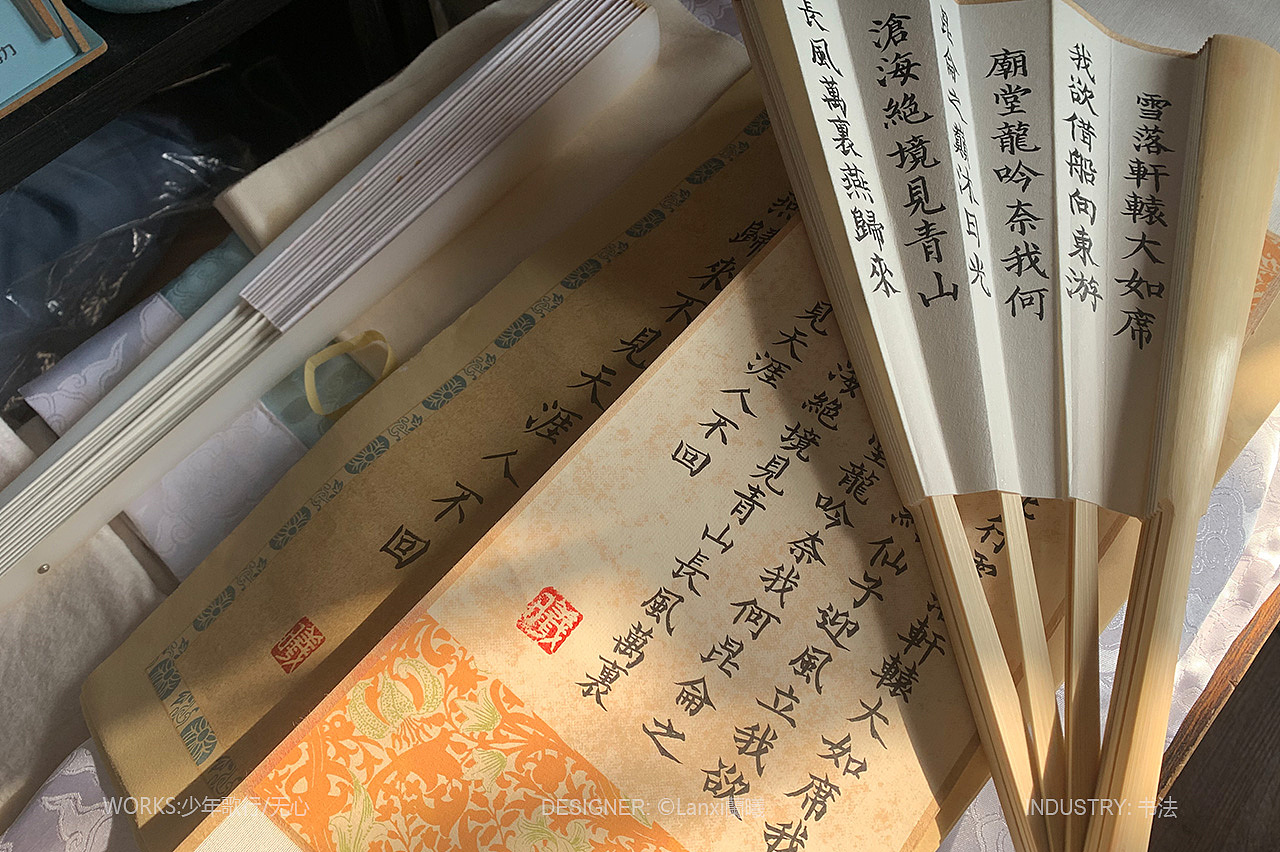 雪落軒轅大如席
我欲借船向東游
廟堂龍吟奈我何
昆侖之巔沐日光
滄海絕境見青山
長風萬裏燕歸來
行雲
軒轅大如席我
仙子迎風立我欲
龍吟奈我何昆侖之
海絕境見青山長風萬裏
見天涯人不回
燕歸來不見天涯人不回
力
WORKS:少年歌行/无心
DESIGNER: ©Lanxi
INDUSTRY: 书法